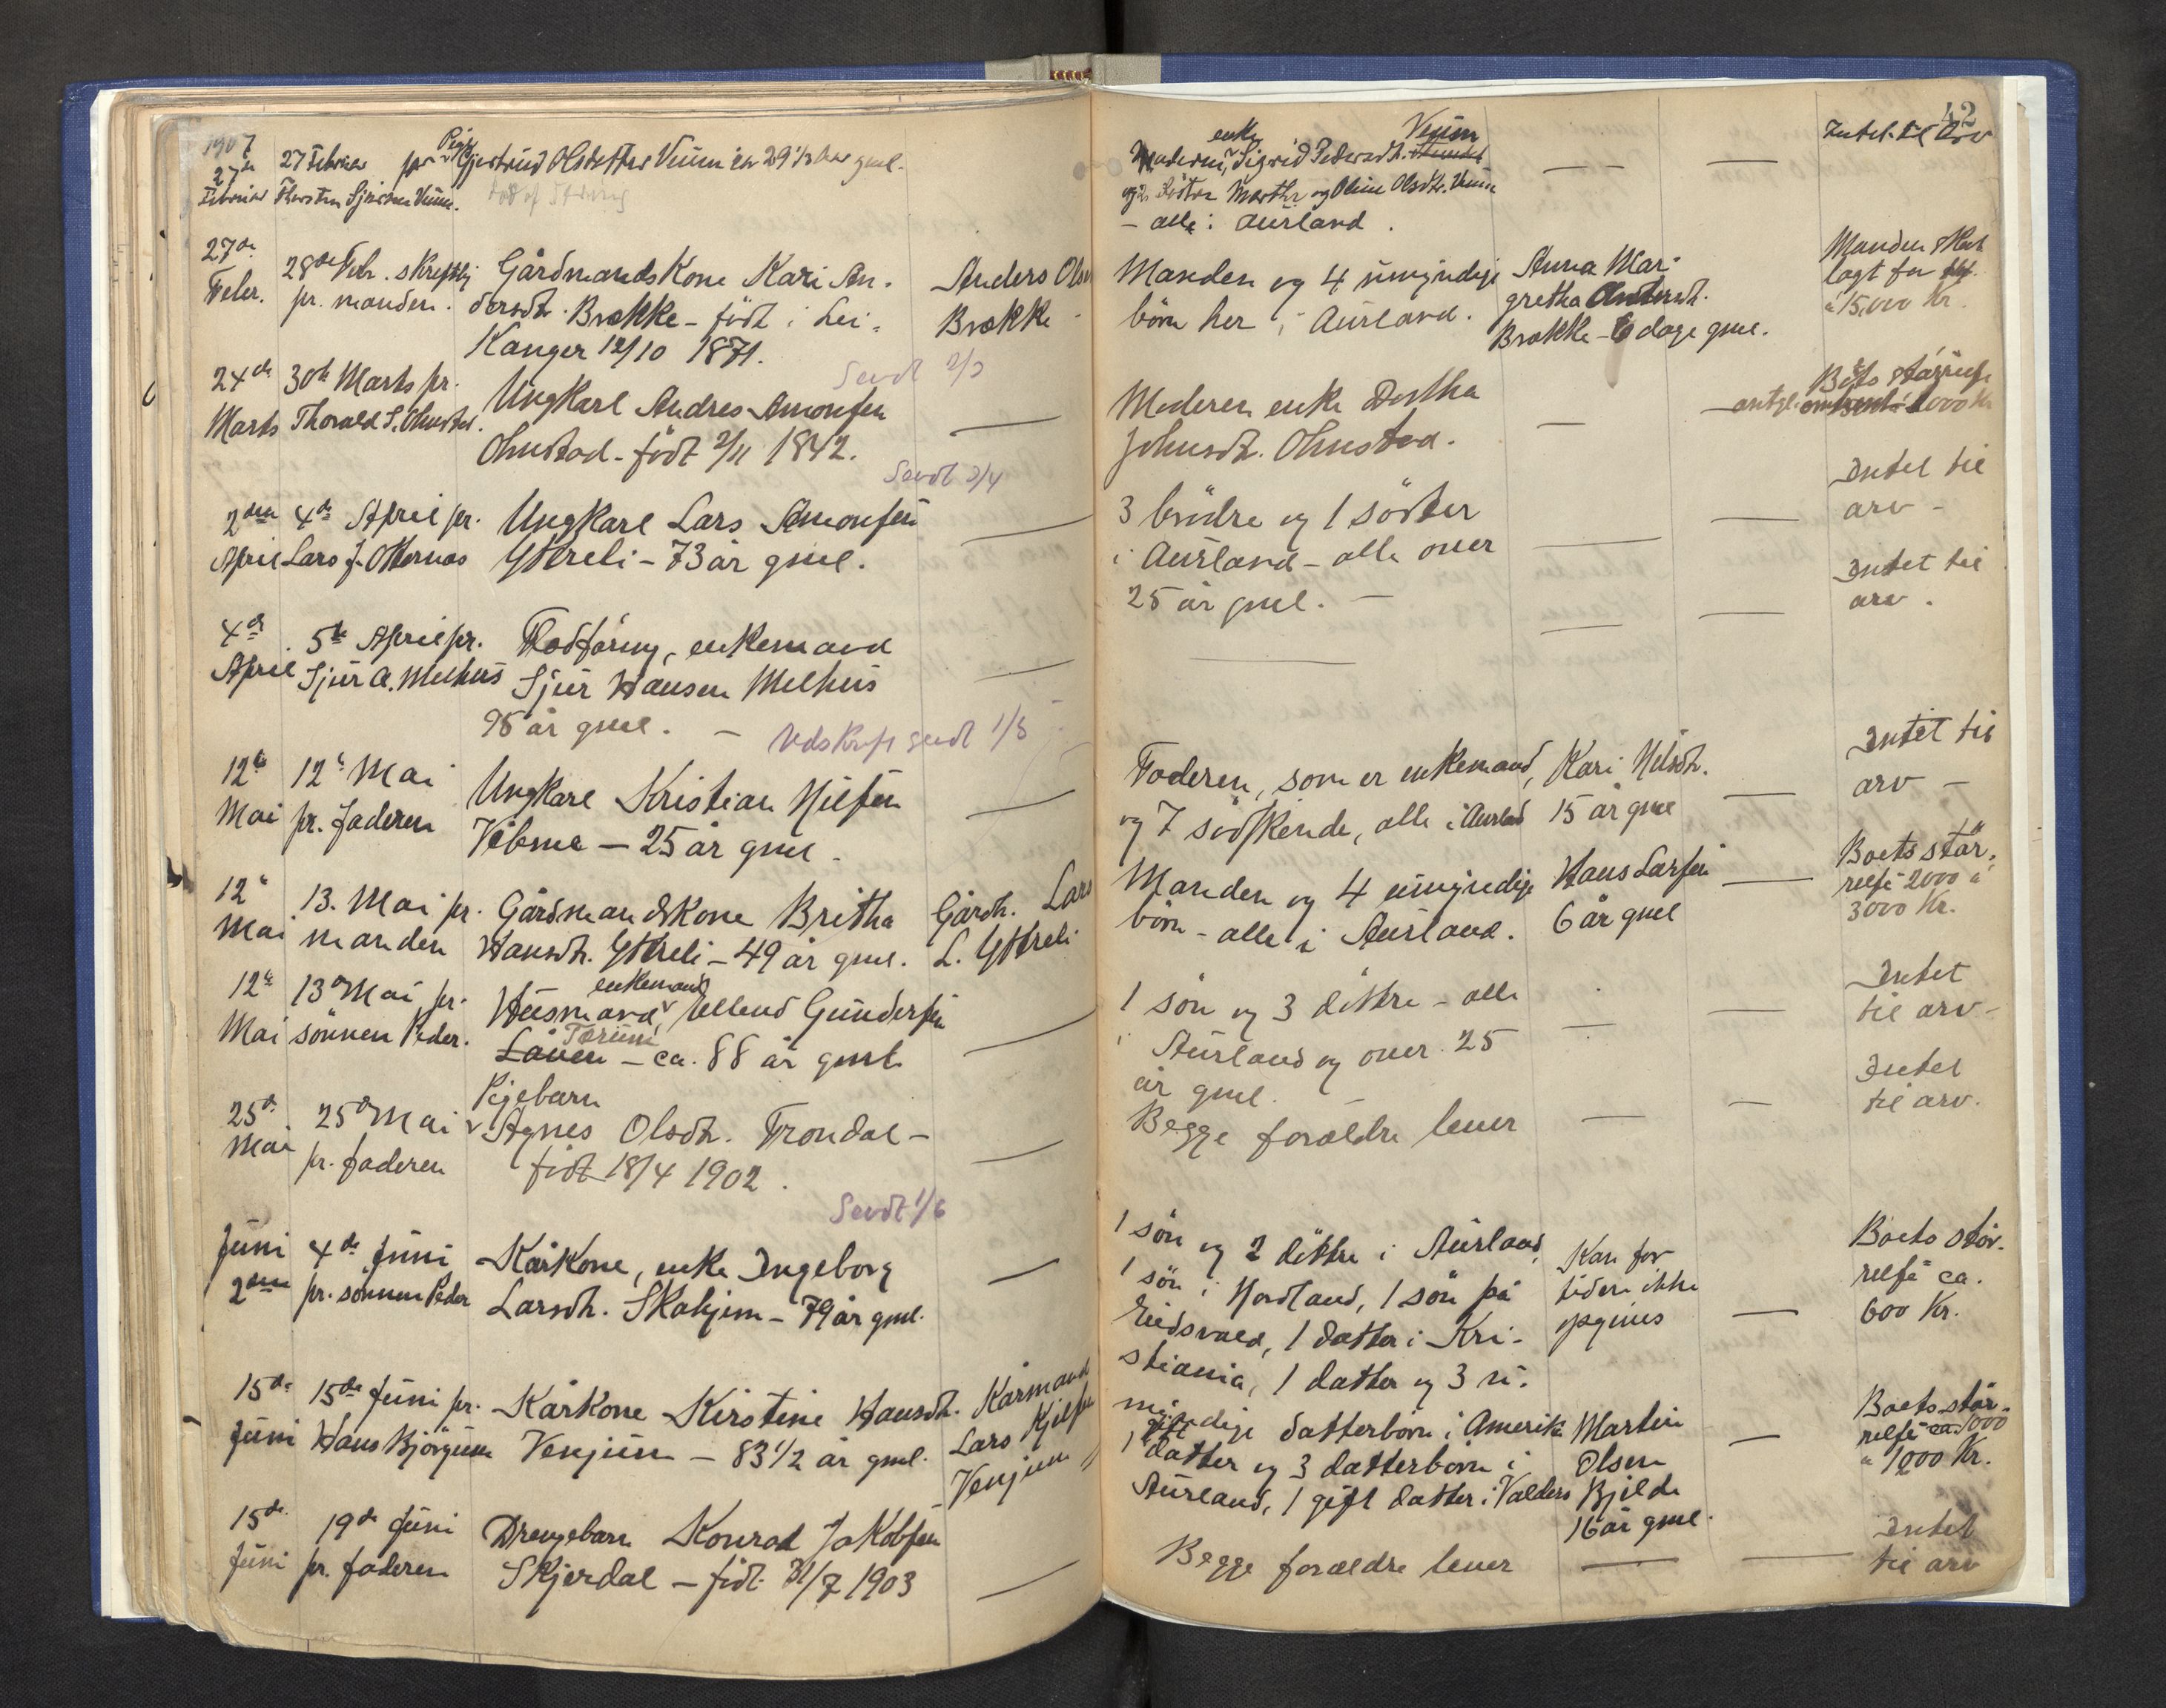 1907
27de 27 Februar pr Pige Gjertrud Olsdatter Veum
Februar
27de 28de Febr. skriftlig Gårdmandskone Kari An- Anders Olsen
Febr. pr. manden. dersdt. Brække - født i Lei- Brække
Kanger 12/10 1871.
Sendt 2/3
24de 30te Marts pr. Ungkarl Andres Amonsen —
Marts Thorald S. Ohnstad. Ohnstad - født 2/11 1842.
Sendt 2/4
2den 4de April pr. Ungkarl Lars Amonsen —
April Lars J. Otternæs Ytreli - 73 år gml.
4de 5te April pr. Flodføring, enkemand
April Sjur A. Melhus Sjur Hansen Melhus —
95 år gml. —
Udskrift sendt 1/5
12te 12te Mai Ungkarl Kristian Nilsen —
Mai pr. faderen — 25 år gml.
12te 13. Mai pr. Gårdmandskone Britha Gårdb. Lars
Mai manden Hansdt. Ytreli - 49 år gml. L. Ytreli
enkemand
12te 13de Mai pr. Husmand, Ellend Gundersen —
Mai sønnen Peder. Låven Terum - ca. 88 år gml.
Pigebarn
25de 25de Mai Agnes Olsdt. Frondal - —
Mai pr. faderen født 18/4 1902.
Sendt 1/6
Juni 4de Juni Kårkone, enke Ingeborg —
2den pr. sønnen Peder Larsdt. Skahjem - 79 år gml.
15de 15de Juni pr. Kårkone Kirstine Hansdt. Kårmand
Juni Hans Bjørgum Venjum - 83 1/2 år gml. Lars Kjelsen
Venjum
15de 19de Juni Drengebarn Konrad Jakobsen —
Juni pr. faderen Skjerdal - født 31/7 1903
42
enke Veum
Moderen, Sigrid Pedersdt. — — Intet til Arv
og 2 Søstre Marthe og Oline Olsdt. Veum
- alle i Aurland.
Manden og 4 umyndige Anna Mar- Manden skat-
børn her i Aurland. gretha Andersdt. lagt for
Brække - 6 dage gml. á 15,000 Kr.
Moderen enke Dortha — Boets størrelse
Johnsdt. Ohnstad. antgl. omtrent 1000 Kr
3 brødre og 1 søster — — Intet til
i Aurland - alle over arv -
25 år gml. -
— — — Intet til
arv.
Faderen, som er enkemand, Kari Nilsdt. — Intet til
og 7 sødskende, alle i Aurland 15 år gml arv -
Manden og 4 umyndige Hans Larsen — Boets stør-
børn - alle i Aurland. 6 år gml relse 2000 á
3000 Kr.
1 søn og 3 døttre - alle — — Intet
i Aurland og over 25 til arv -
år gml.
Begge forældre lever — — Intet
til arv.
1 søn og 2 døttre i Aurland, Kan for Boets stør-
1 søn i Nordland, 1 søn på tiden ikke — relse ca.
Eidsvold, 1 datter i Kri- opgives 600 Kr.
stiania, 1 datter og 3 u-
myndige datterbørn i Amerik. Martin — Boets stør-
1 gift datter og 3 datterbørn i Olsen relse ca.
Aurland, 1 gift datter i Valders Bjelde 1000 Kr.
16 år gml.
Begge forældre lever — — Intet
til arv